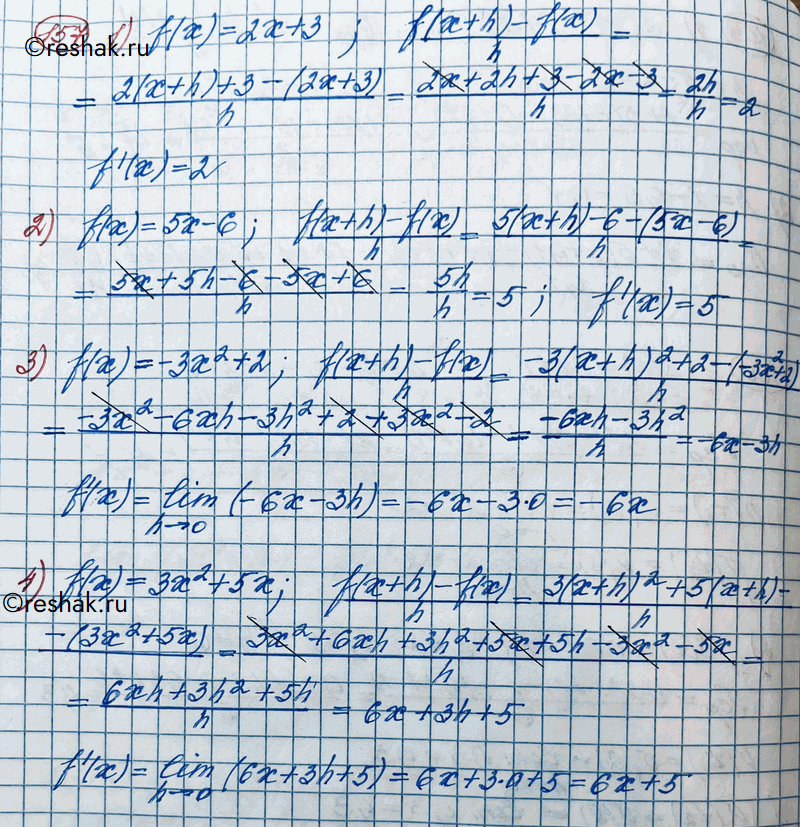 157 1) f(x) = 2x+3 ; (f(x+h) – f(x))/h =
©reshak.ru
= (2(x+h)+3 – (2x+3))/h = (2x+2h+3–2x–3)/h = 2h/h = 2
f'(x) = 2
2) f(x) = 5x–6 ; (f(x+h) – f(x))/h = (5(x+h)–6–(5x–6))/h =
= (5x+5h–6–5x+6)/h = 5h/h = 5 ; f'(x) = 5
3) f(x) = –3x²+2 ; (f(x+h) – f(x))/h = (–3(x+h)²+2–(–3x²+2))/h
= (–3x²–6xh–3h²+2+3x²–2)/h = (–6xh–3h²)/h = –6x–3h
f'(x) = lim h→0 (–6x–3h) = –6x–3·0 = –6x
4) f(x) = 3x²+5x ; (f(x+h) – f(x))/h = (3(x+h)²+5(x+h)–
©reshak.ru
–(3x²+5x))/h = (3x²+6xh+3h²+5x+5h–3x²–5x)/h =
= (6xh+3h²+5h)/h = 6x+3h+5
f'(x) = lim h→0 (6x+3h+5) = 6x+3·0+5 = 6x+5